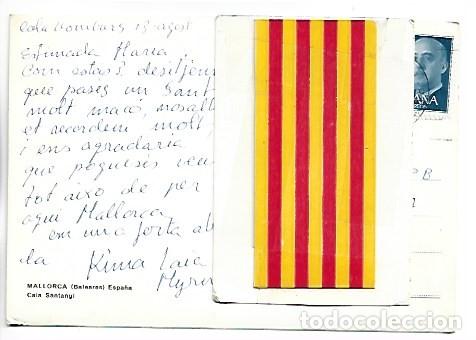 Cala Bombarz 13 agost
Estimada Maria,
Com estas? desitjem
que pases un Sant
molt maco, nosalt
et recordem molt
i ens agradaria
que poguesis veu
tot aixo de per
aqui Mallorca
em una forta ab
la
MALLORCA (Baleares) España
Cala Santanyi
ESPAÑA
todocoleccion.net